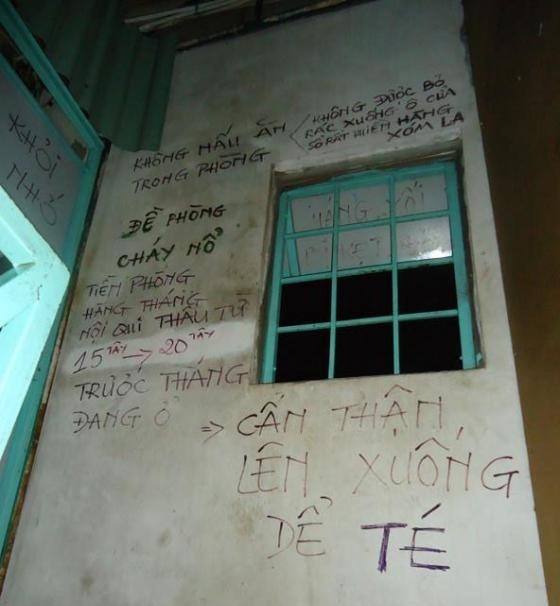 KHỎI
NHỚ
KHÔNG NẤU ĂN
TRONG PHÒNG
KHÔNG ĐƯỢC BỎ
RÁC XUỐNG Ô CỬA
SỔ RẤT PHIỀN HÀNG
XÓM LA
ĐỀ PHÒNG
CHÁY NỔ
TIỀN PHÒNG
HÀNG THÁNG
NỘI QUI THÂU TỪ
15 TÂY → 20 TÂY
TRƯỚC THÁNG
ĐANG Ở
⇒ CẨN THẬN
LÊN XUỐNG
DỂ TÉ